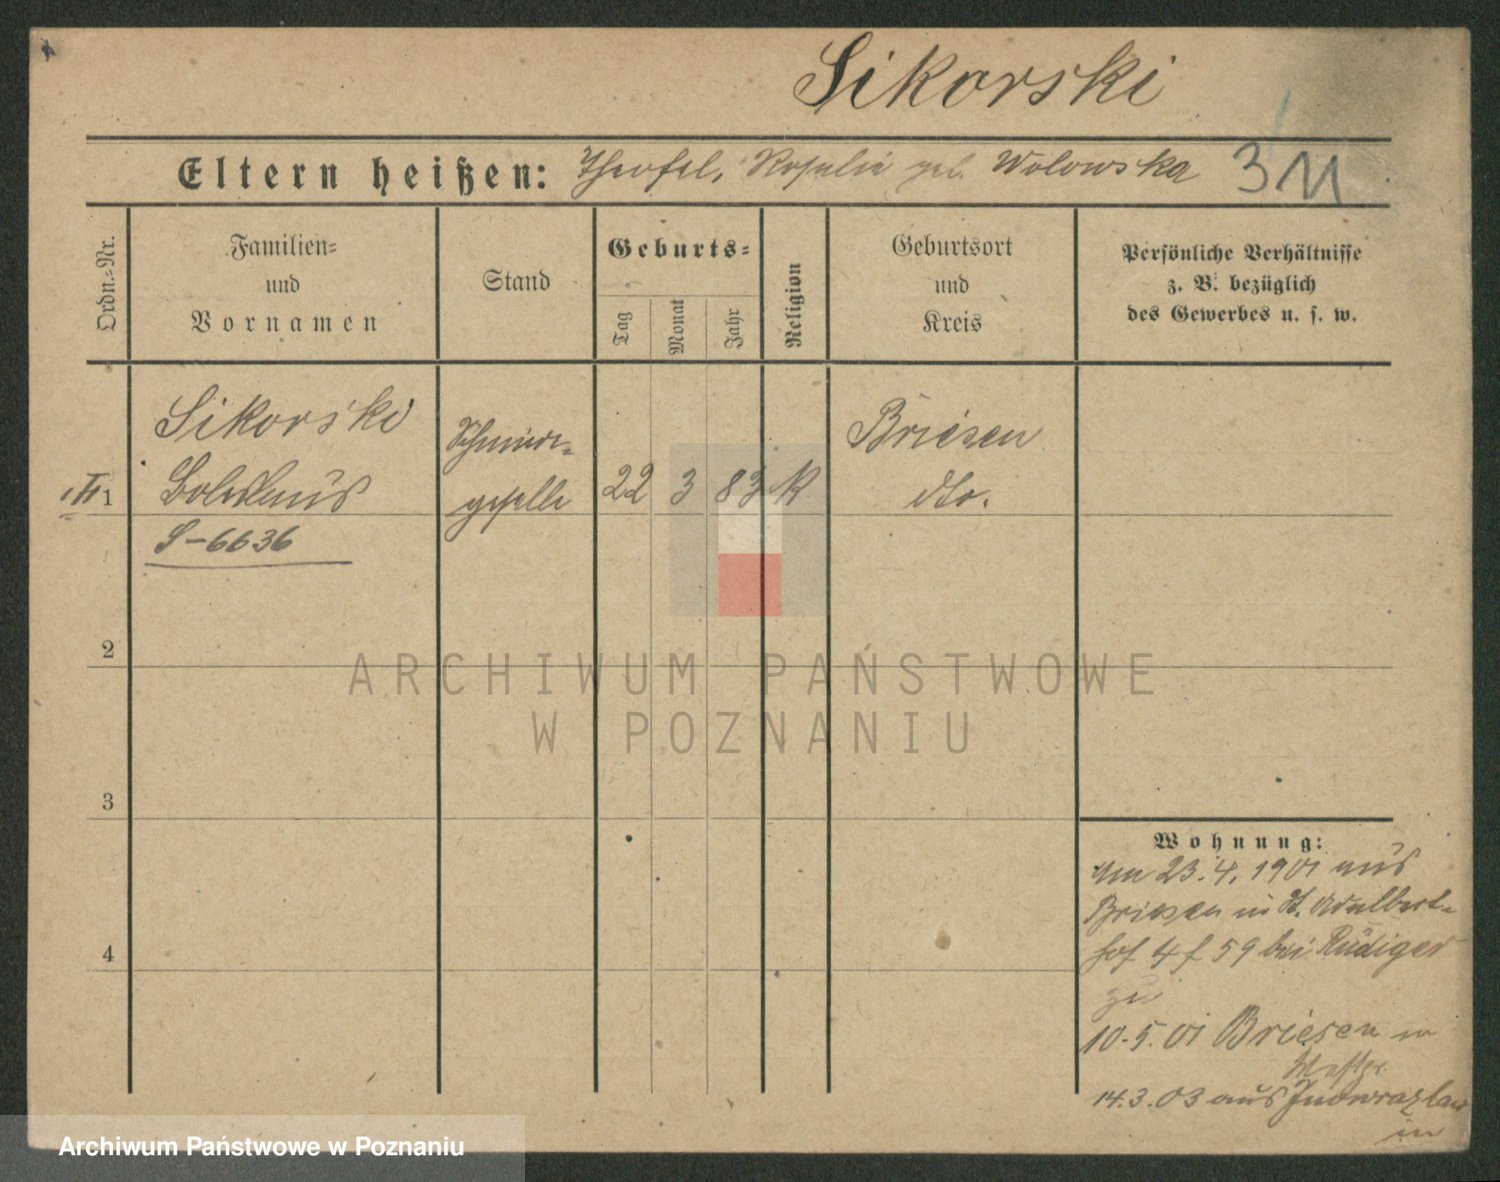 Sikorski
Eltern heißen: Theofel, Rosalie geb. Wolowska
311
Ordn.-Nr.
Familien-
und
Vornamen
Stand
Geburts-
Tag
Monat
Jahr
Religion
Geburtsort
und
Kreis
Persönliche Verhältnisse
z. B. bezüglich
des Gewerbes u. s. w.
Sikorski
Schmiede-
Briesen
1
Boleslaus
geselle
22
3
83
K
dto.
S-6636
2
ARCHIWUM PAŃSTWOWE
W POZNANIU
3
Wohnung:
Am 23.4.1901 aus
Briesen in St. Adalbert-
hof 4 f 59 bei Rüdiger
4
zu
10.5.01 Briesen
Westpr.
14.3.03 aus Inowrazlaw
in
Archiwum Państwowe w Poznaniu